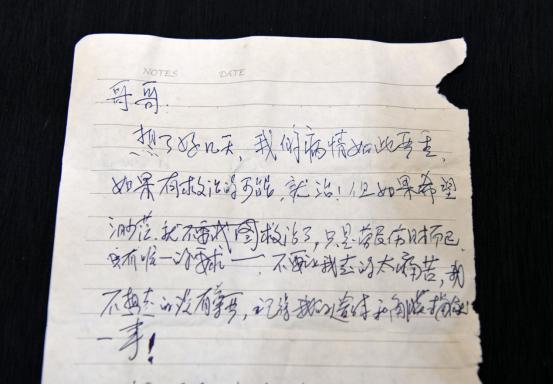 NOTES DATE
哥哥:
想了好几天,我的病情如此严重,
如果有救治的可能,就治!但如果希望
渺茫,就不要我救治了,只是劳民伤财而已.
我唯一的要求——不要让我走的太痛苦,我
不想走的没有尊严,记得我的遗体和角膜捐献
一事!